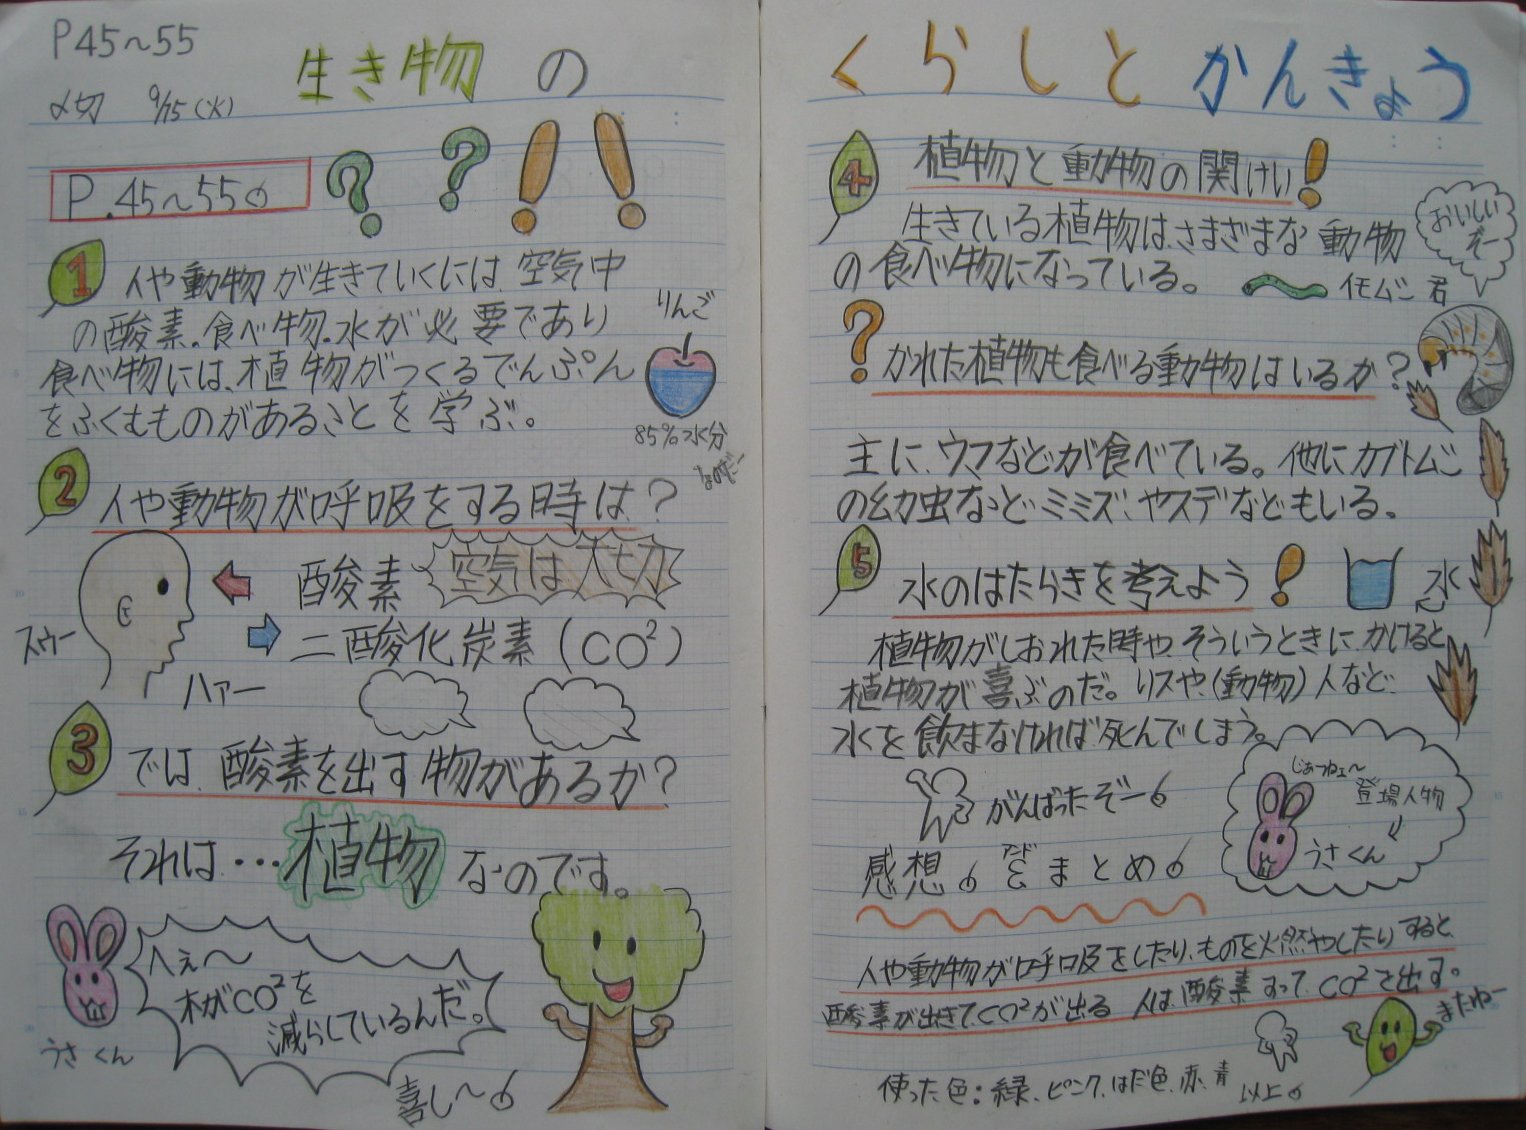 P45～55
〆切 9/15(火)
生き物の
P.45～55
1 人や動物が生きていくには空気中
の酸素.食べ物.水が必要であり
食べ物には、植物がつくるでんぷん
をふくむものがあることを学ぶ。
りんご
85%水分
2 人や動物が呼吸をする時は?
酸素
空気は大切
二酸化炭素(CO²)
スゥー
ハァー
3 では、酸素を出す物があるか?
それは…植物なのです。
へぇ～
木がCO²を
減らしているんだ。
うさくん
喜し～
くらしとかんきょう
4 植物と動物の関けい!
生きている植物は、さまざまな動物
の食べ物になっている。
おいしい
ぞー
イモムシ君
? かれた植物も食べる動物はいるか?
主に、ウマなどが食べている。他にカブトムシ
の幼虫など、ミミズ、ヤスデなどもいる。
5 水のはたらきを考えよう!
水
植物がしおれた時や、そういうときに、かけると
植物が喜ぶのだ。リスや、(動物)人など、
水を飲まなければ死んでしまう。
がんばったぞー
じぁつねェ～
登場人物
うさくん
感想 アンド & まとめ
人や動物が呼吸をしたり、ものを火燃やしたりすると、
酸素が出きて、CO²が出る 人は、酸素すって、CO²を出す。
またねー
使った色:緑、ピンク、はだ色、赤、青
以上